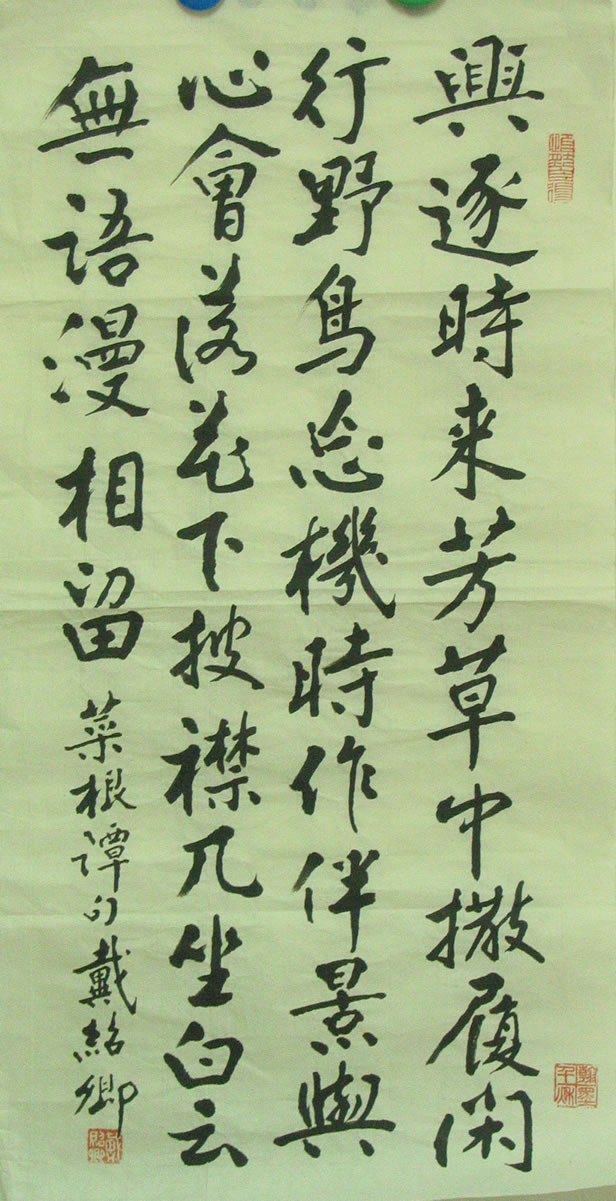 興逐時来芳草中撒履閑
行野鳥忘機時作伴景與
心會落花下披襟兀坐白云
無語漫相留
菜根譚句戴紹卿